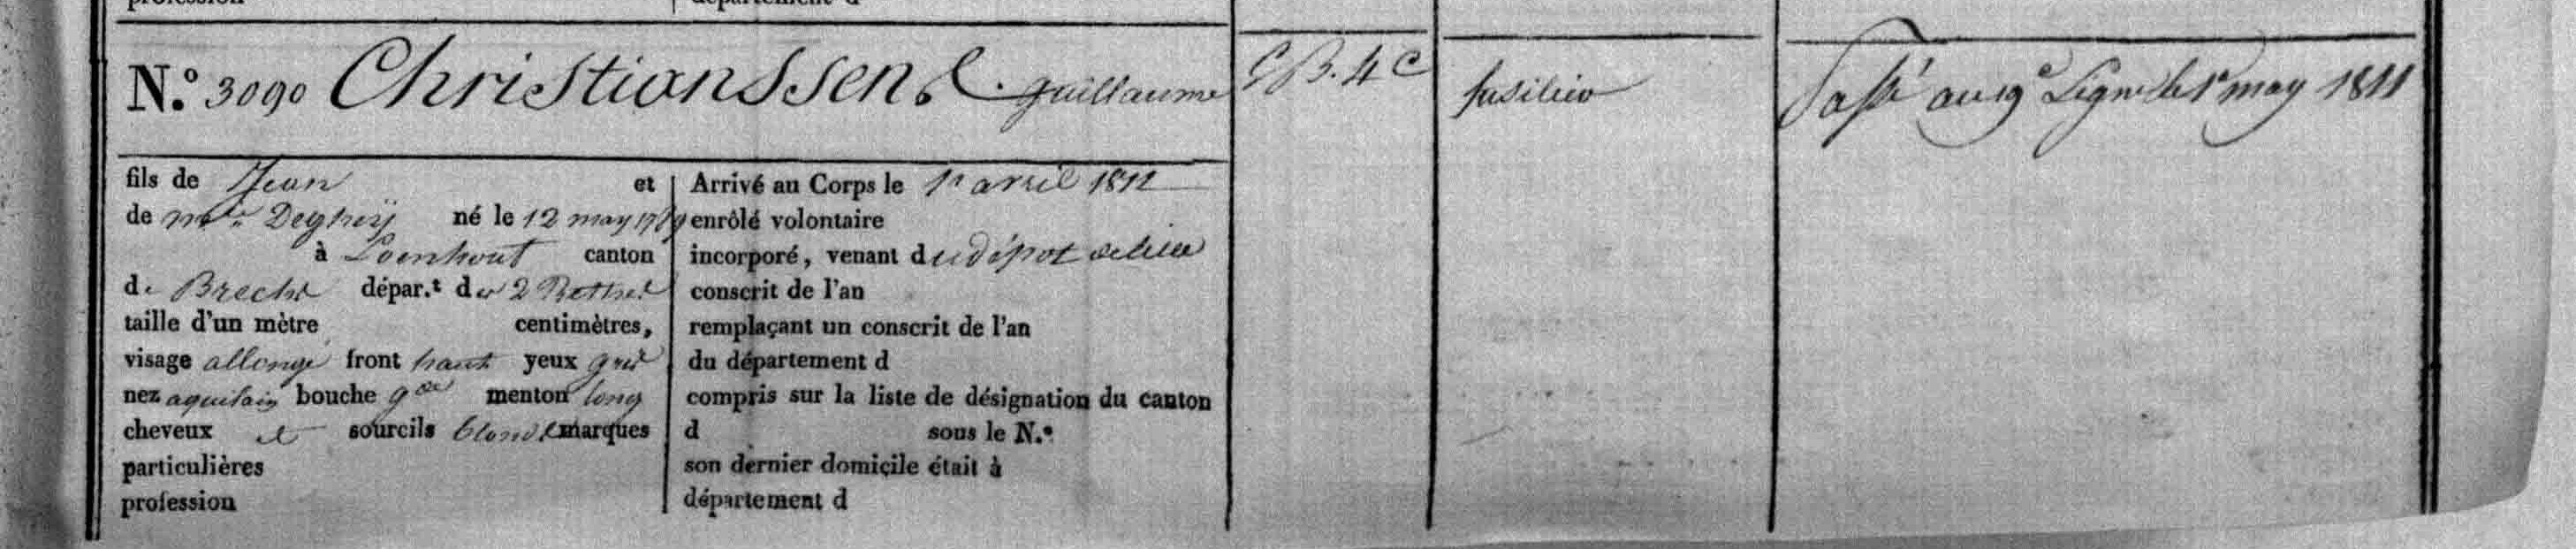 profession département d
N.º 3090 Christianssens Guillaume
5 B. 4 C
fusilier
Passé au 19e Ligne le 1er may 1811
fils de Jean et
de mie Deyheÿ né le 12 may 1789
à Loenhout canton
de Brecht dépar.t des 2 Nethes
taille d'un mètre centimètres,
visage allongé front haut yeux gris
nez aquilain bouche gde menton long
cheveux et sourcils blonds marques
particulières
profession
Arrivé au Corps le 1er avril 1811
enrôlé volontaire
incorporé, venant du dépot de Lille
conscrit de l'an
remplaçant un conscrit de l'an
du département d
compris sur la liste de désignation du canton
d sous le N.º
son dernier domicile était à
département d